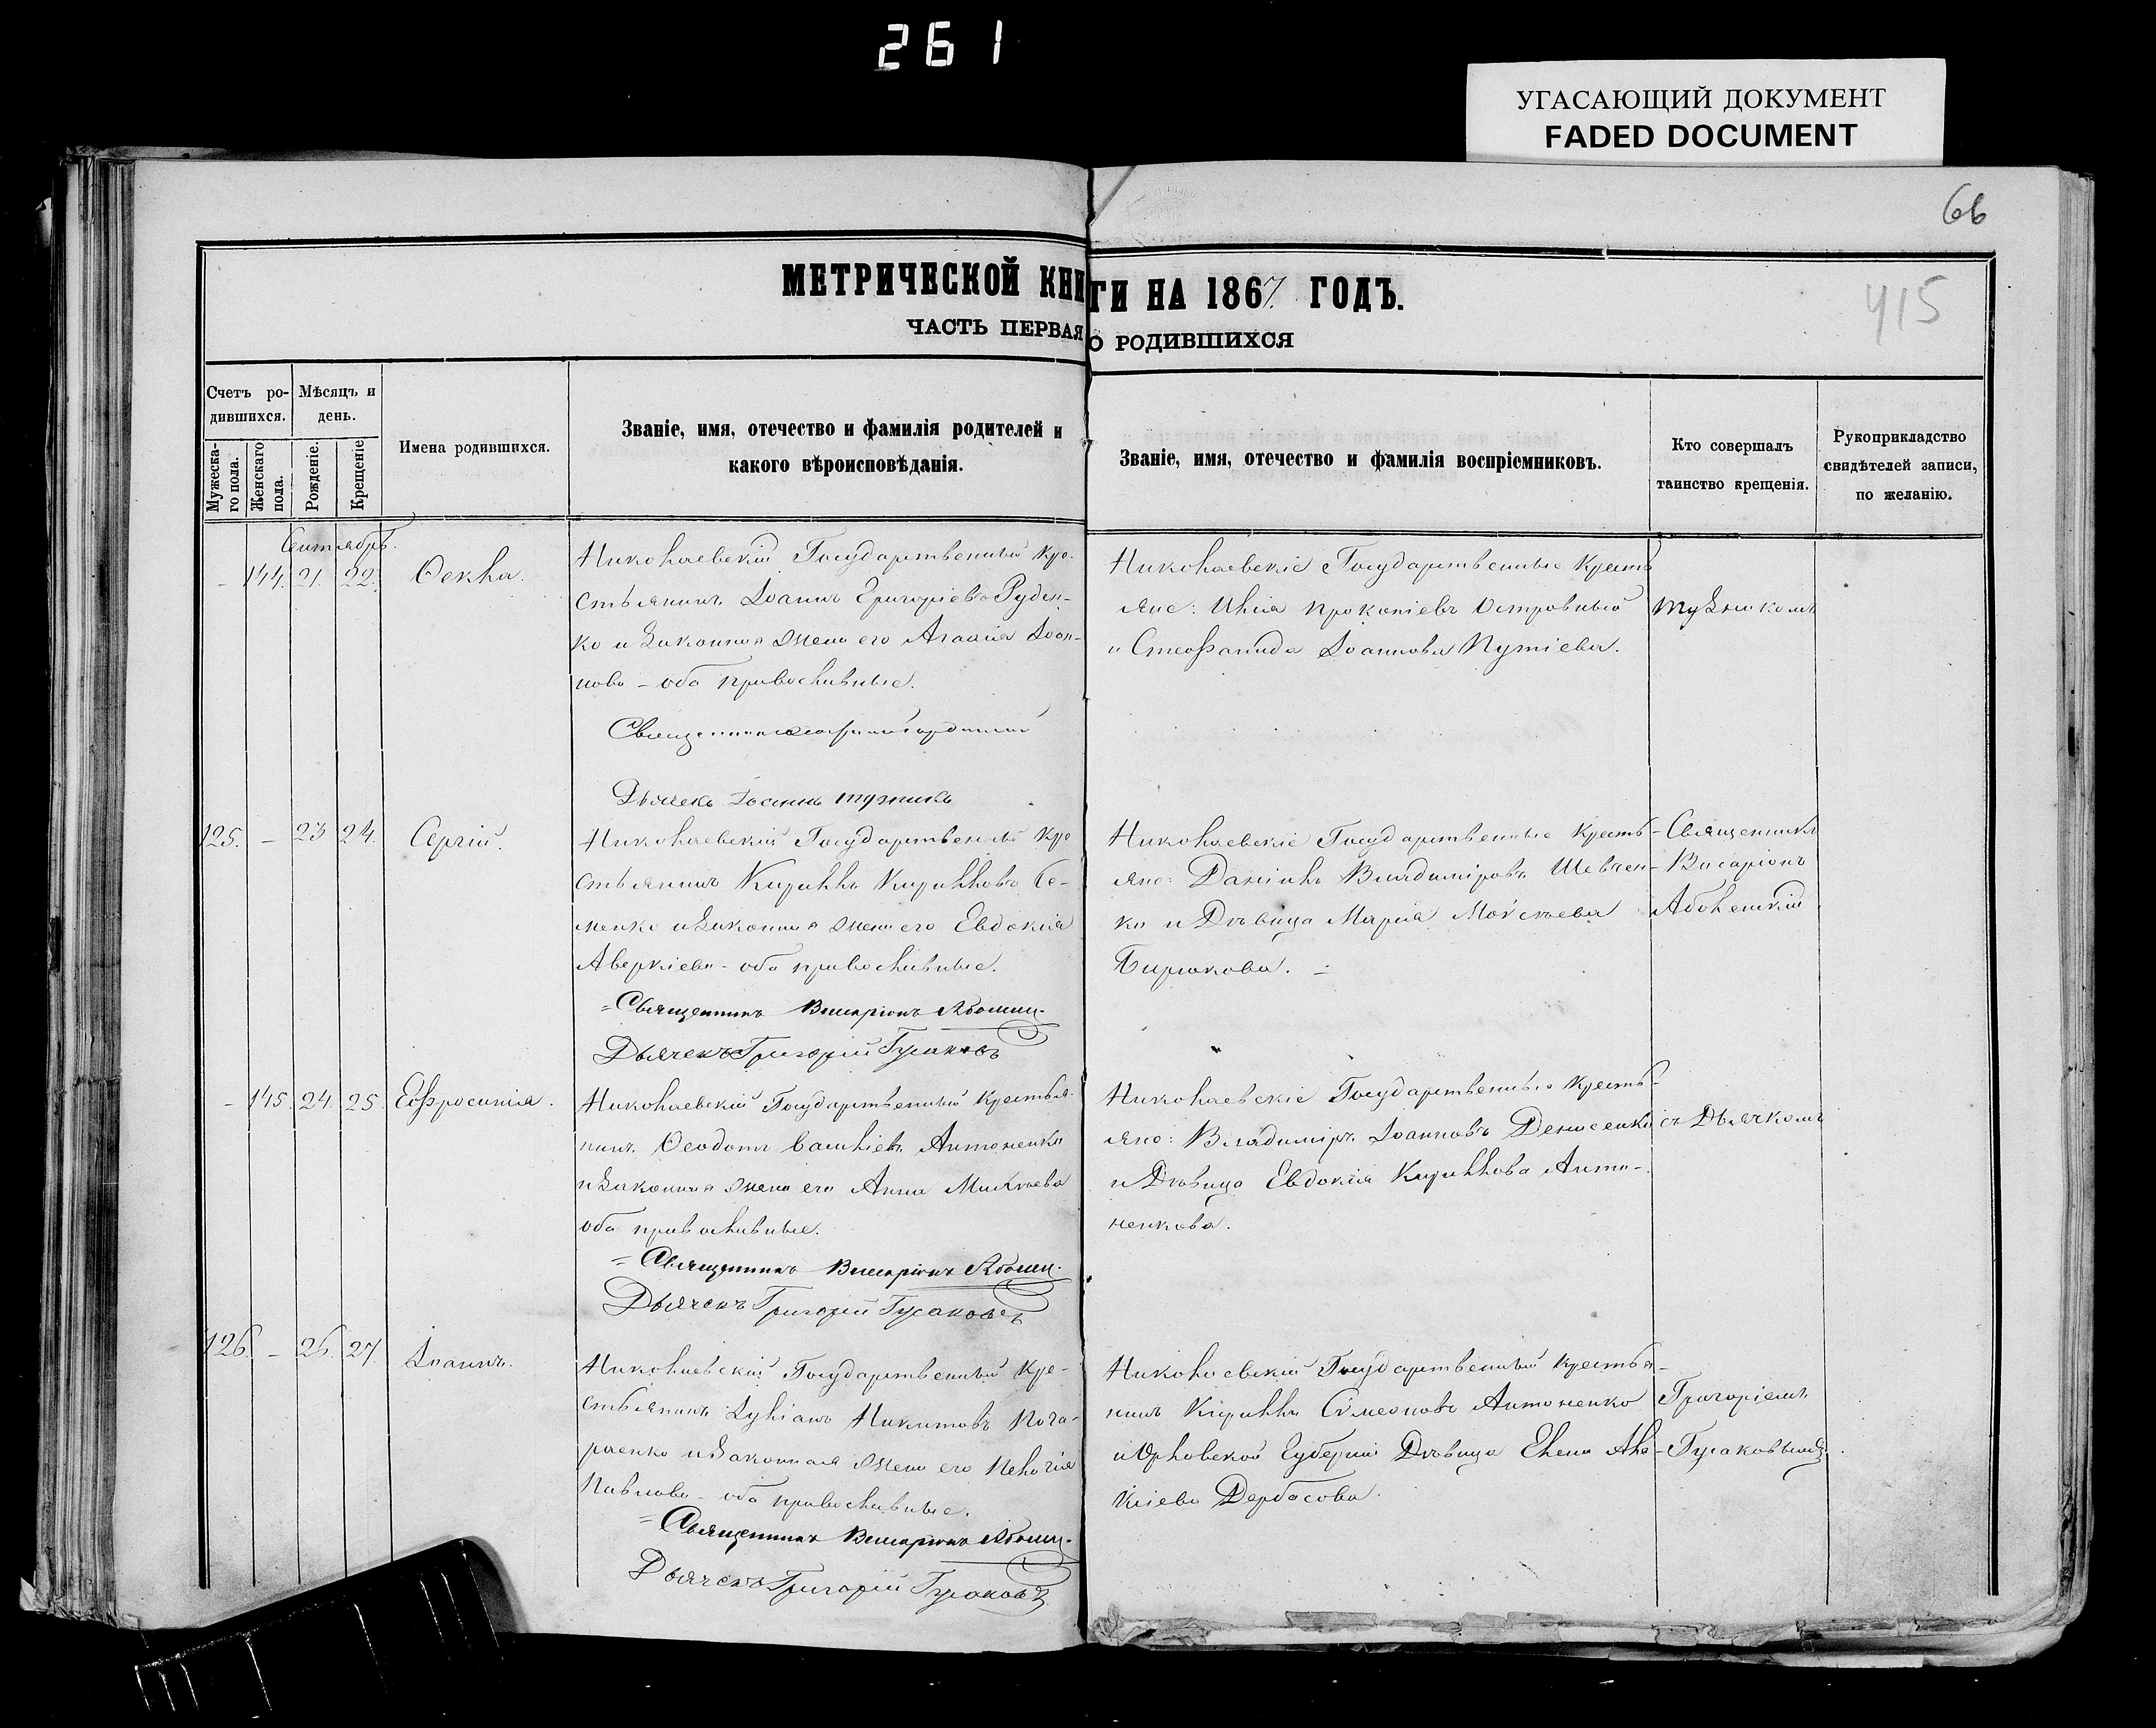 261
УГАСАЮЩИЙ ДОКУМЕНТ
FADED DOCUMENT
66
415
МЕТРИЧЕСКОЙ КНИГИ НА 1867. ГОДЪ.
ЧАСТЬ ПЕРВАЯ О РОДИВШИХСЯ
Счетъ ро-
дившихся.
Мужеска-
го пола.
Женскаго
пола.
Мѣсяцъ и
день.
Рожденіе.
Крещеніе
Имена родившихся.
Званіе, имя, отечество и фамилія родителей и
какого вѣроисповѣданія.
Званіе, имя, отечество и фамилія воспріемниковъ.
Кто совершалъ
таинство крещенія.
Рукоприкладство
свидѣтелей записи,
по желанію.
Сентябрь.
- 144. 21. 22. Ѳекла.
Николаевскій Государственный Кре-
стьянинъ Іоаннъ Григоріевъ Руден-
ко и законная жена его Агаѳія Іоан-
нова - оба православные.
Священникъ
Дьячекъ Іоаннъ Тузникъ
Николаевскіе Государственные Кресть
яне: Илія Прокопіевъ Островный
и Стефанида Іоаннова Путіева.
Тузникомъ
125. - 23 24. Сергій.
Николаевскій Государственный Кре
стьянинъ Кириллъ Кирилловъ Се-
менко и законная жена его Евдокія
Аверкіева - оба православные.
Священникъ Висаріонъ
Дьячекъ Григорій Гусаковъ
Николаевскіе Государственные Кресть-
яне: Даніилъ Владиміровъ Шевчен-
ко и Дѣвица Марія Моѵсеева
Бирюкова.
Священникъ
Висаріонъ
- 145. 24. 25. Евфросинія.
Николаевскій Государственный Крестья-
нинъ Ѳеодотъ Савиліевъ Антоненко
и законная жена его Анна Михаева
оба православные.
Священникъ Висаріонъ
Дьячекъ Григорій Гусаковъ
Николаевскіе Государственные Кресть-
яне: Владиміръ Іоанновъ Денисенко
и Дѣвица Евдокія Кириллова Анто-
ненкова.
съ Дьячкомъ
126. - 26. 27. Іоаннъ.
Николаевскій Государственный Кре-
стьянинъ Лукіанъ Никитовъ Пога-
раенко и законная жена его Пелагія
Павлова - оба православные.
Священникъ Висаріонъ
Дьячекъ Григорій Гусаковъ
Николаевскій Государственный Крестья-
нинъ Кириллъ Сѵмеоновъ Антоненко
и Орловской Губерніи Дѣвица Елена Але-
кіева Дербасова.
Григоріемъ
Гусаковымъ.